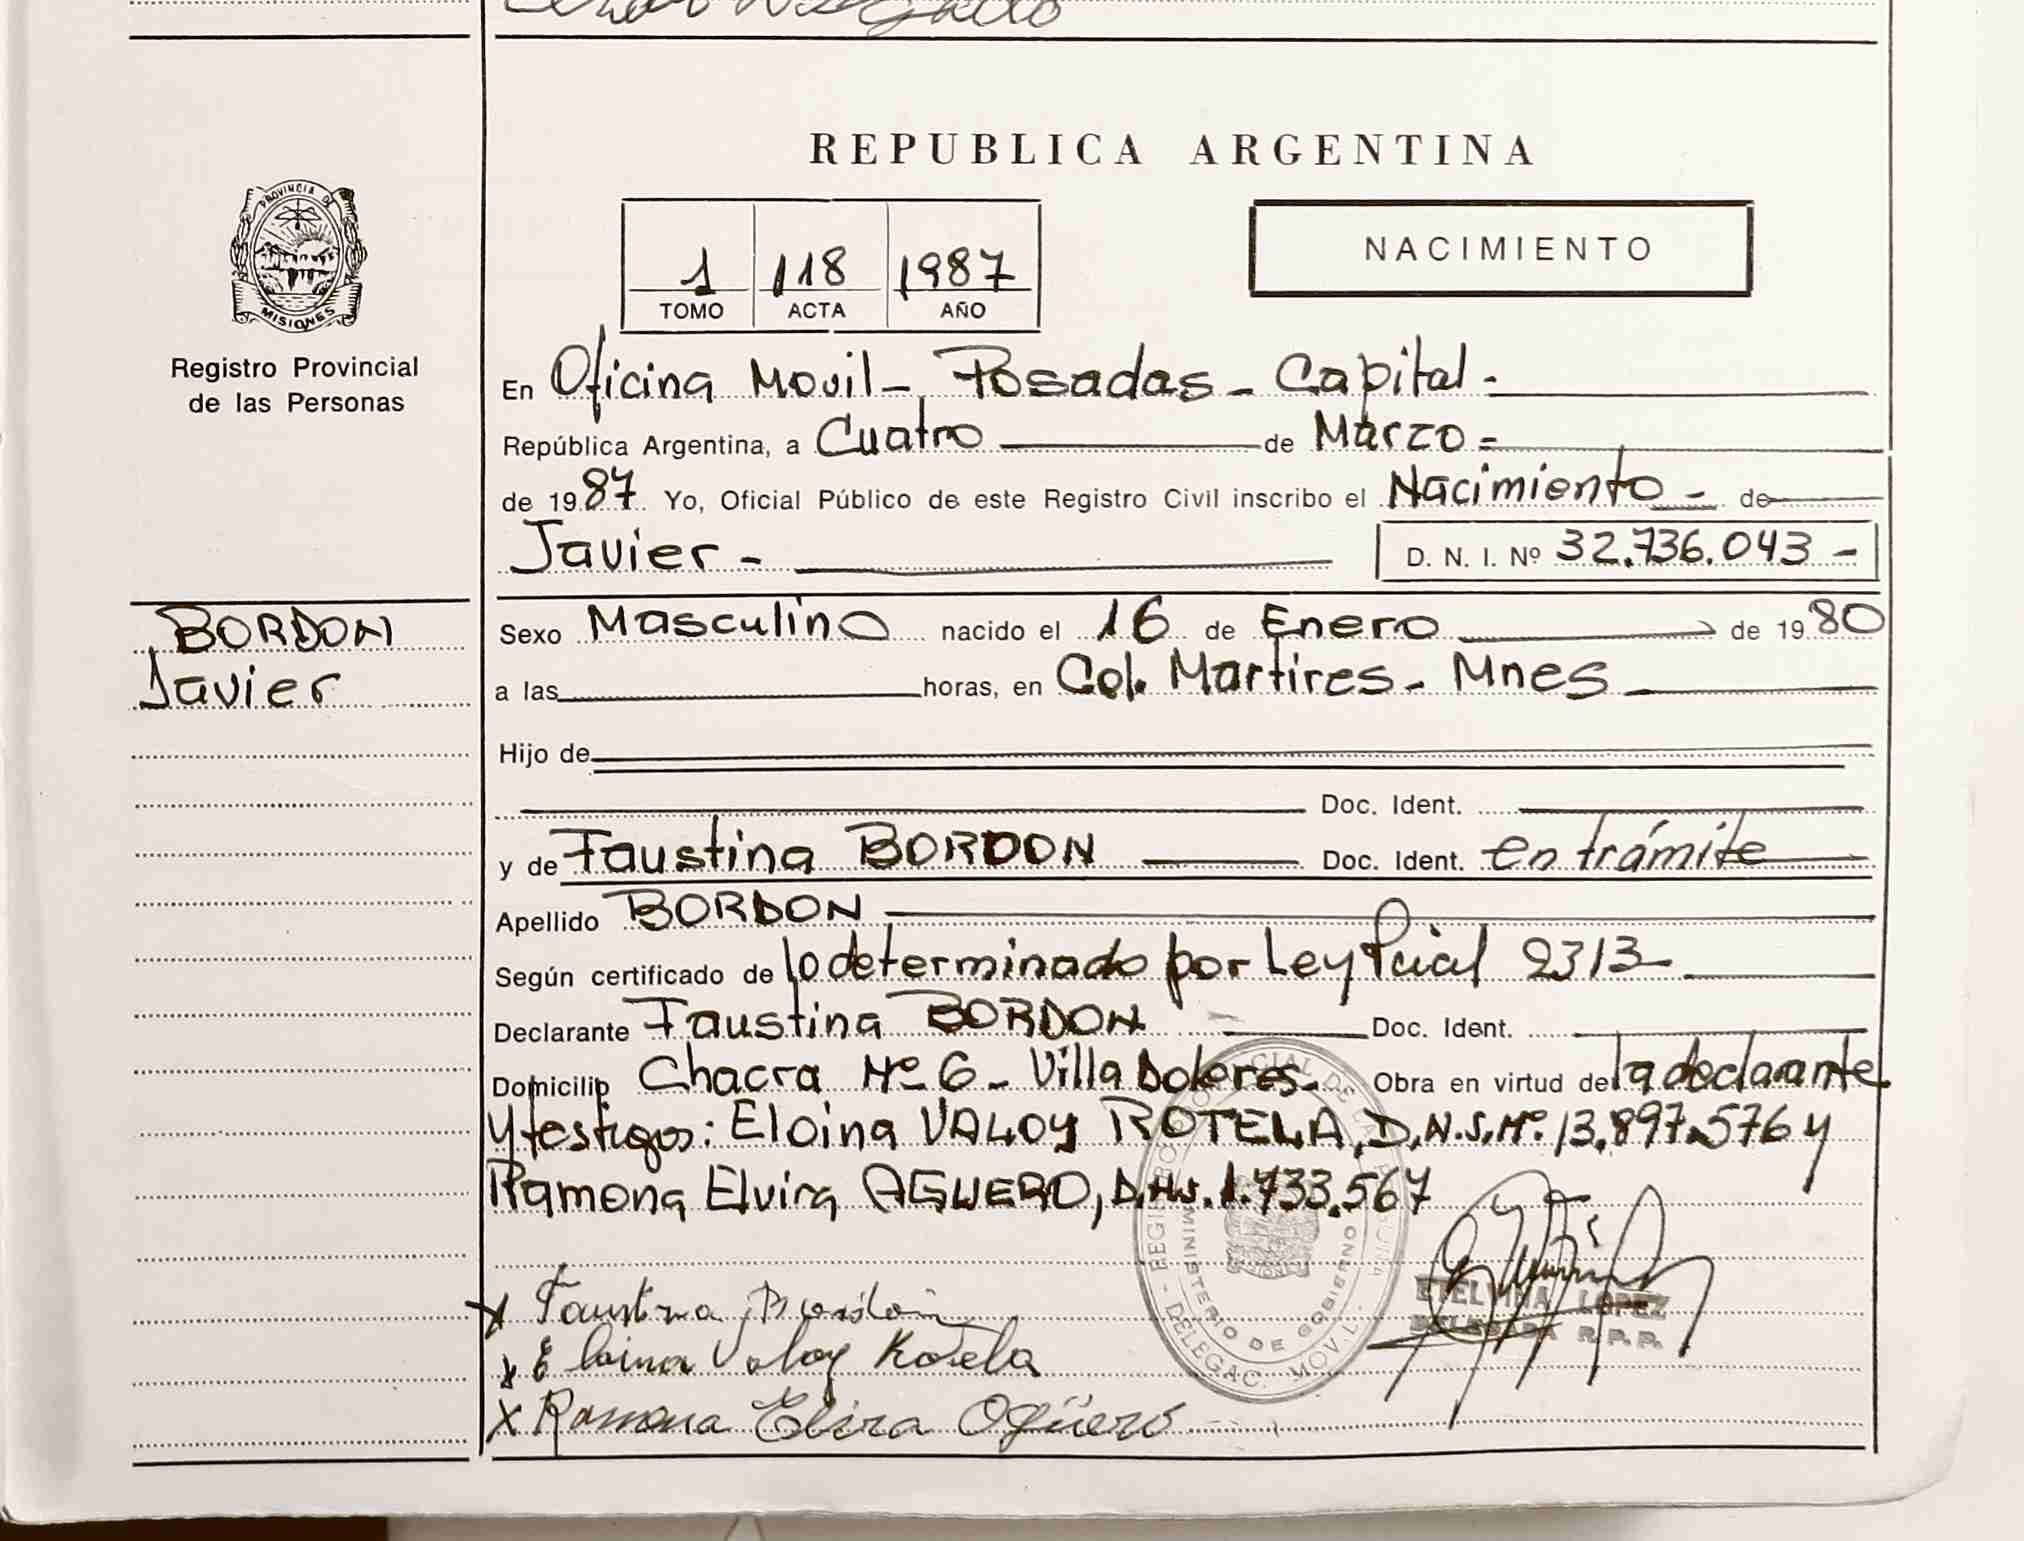 REPUBLICA ARGENTINA
PROVINCIA DE
MISIONES
Registro Provincial
de las Personas
1 118 1987
TOMO ACTA AÑO
NACIMIENTO
En Oficina Movil - Posadas - Capital -
República Argentina, a Cuatro de Marzo -
de 1987 Yo, Oficial Público de este Registro Civil inscribo el Nacimiento - de
Javier - D. N. I. Nº 32.736.043 -
BORDON
Javier
Sexo Masculino nacido el 16 de Enero de 1980
a las horas, en Col. Martires - Mnes
Hijo de
Doc. Ident.
y de Faustina BORDON Doc. Ident. en trámite
Apellido BORDON
Según certificado de lo determinado por Ley Pcial 2313
Declarante Faustina BORDON Doc. Ident.
Domicilio Chacra Nº 6 - Villa Dolores - Obra en virtud de la declarante
y testigos: Eloina VALOY ROTELA, D.N.I. Nº. 13.897.576 y
Ramona Elvira AGUERO, D.N.I. 1.733.567
MINISTERIO DE GOBIERNO
DELEGAC. MOVIL
ETELVINA LOPEZ
DELEGADA R.P.P.
x Faustina Bordon
x Eloina Valoy Rotela
x Ramona Elvira Agüero